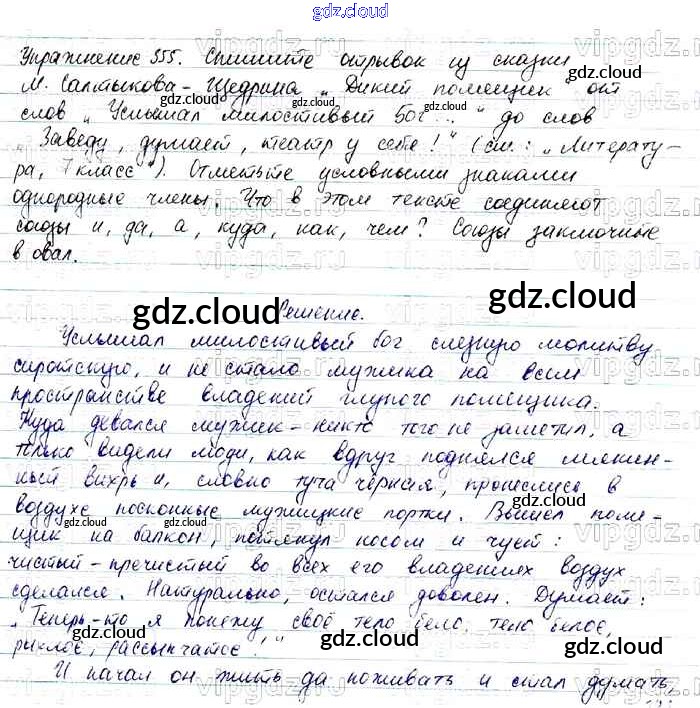 gdz.cloud
Упражнение 355. Спишите отрывок из сказки
М. Салтыкова-Щедрина „Дикий помещик" от
слов „Услышал милостивый Бог..." до слов
„Заведу, думает, театр у себе!" (см.: „Литерату-
ра, 7 класс"). Отметьте условными знаками
однородные члены. Что в этом тексте соединяют
союзы и, да, а, куда, как, чем? Союзы заключите
в овал.
Решение.
Услышал милостивый бог слезную молитву
сиротскую, и не стало мужика на всем
пространстве владений глупого помещика.
Куда девался мужик - никто того не заметил, а
только видели люди, как вдруг поднялся мякин-
ный вихрь и, словно туча чёрная, пронеслись в
воздухе посконные мужицкие портки. Вышел поме-
щик на балкон, потянул носом и чует:
чистый-пречистый во всех его владениях воздух
сделался. Натурально, остался доволен. Думает:
„Теперь-то я понежу своё тело бело, тело белое,
рыхлое, рассыпчатое!"
И начал он жить да поживать и стал думать,